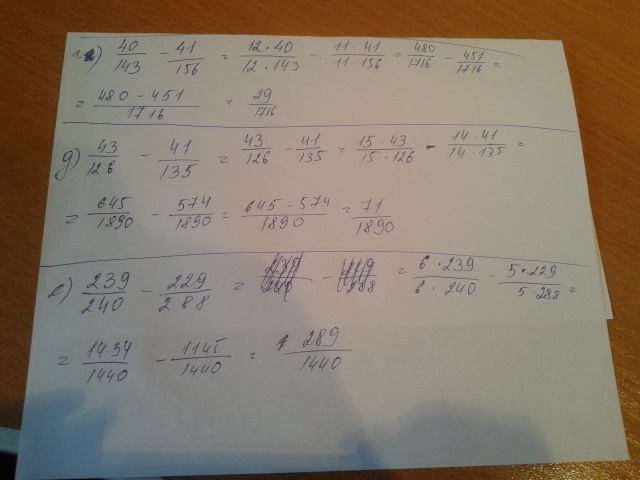 г) 40/143 - 41/156 = 12·40/12·143 - 11·41/11·156 = 480/1716 - 451/1716 =
= 480-451/1716 = 29/1716
д) 43/126 - 41/135 = 43/126 - 41/135 = 15·43/15·126 - 14·41/14·135 =
= 645/1890 - 574/1890 = 645-574/1890 = 71/1890
е) 239/240 - 229/288 = - = 6·239/6·240 - 5·229/5·288 =
= 1434/1440 - 1145/1440 = 289/1440